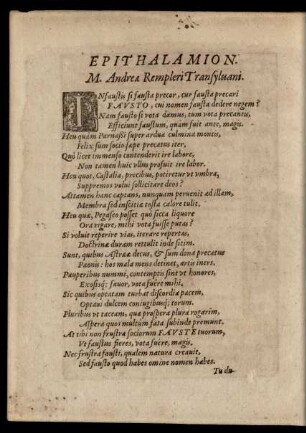 EPITHALAMION.
M. Andreæ Rempleri Transylvani.
INfaustis si fausta precor, cur fausta precari
FAVSTO, cui nomen fausta dedere negem?
Nam fausto si vota damus, tum vota precantis,
Efficiunt faustum, quàm fuit ante, magis.
Heu quàm Parnassi super ardua culmina montis,
Felix sum socio sæpe precatus iter,
Quò licet immenso contenderit ire labore,
Non tamen huic vllus profuit ire labor.
Heu quot, Castalia, precibus, potiretur vt vmbra,
Supremos volui sollicitare deos?
Attamen hanc captans, nunquam pervenit ad illam,
Membra sed inscitiæ tosta calore tulit.
Heu quæ, Pegaseo posset quò sicca liquore
Ora rigare, mihi vota fuisse putas?
Si voluit reperire vias, iterare repertas,
Doctrinæ durum rettulit inde sitim.
Sunt, quibus Astrææ decus, & sum dona precatus
Pæonis: hos mala mens detinet, artis iners.
Pauperibus nummi, contemptis sint vt honores,
Exosisq; favor, vota fuêre mihi.
Sic quibus optatam turbat discordia pacem,
Optavi dulcem coniugibusq; torum.
Pluribus vt taceam, quæ prospera plura rogarim,
Aspera quot multum fata subinde premunt.
At tibi non frustra sociorum FAVSTE tuorum,
Vt faustus fieres, vota fuêre, magis.
Nec frustra fausti, qualem natura creavit,
Sed fausto quod habes omine nomen habes.
Tu du-